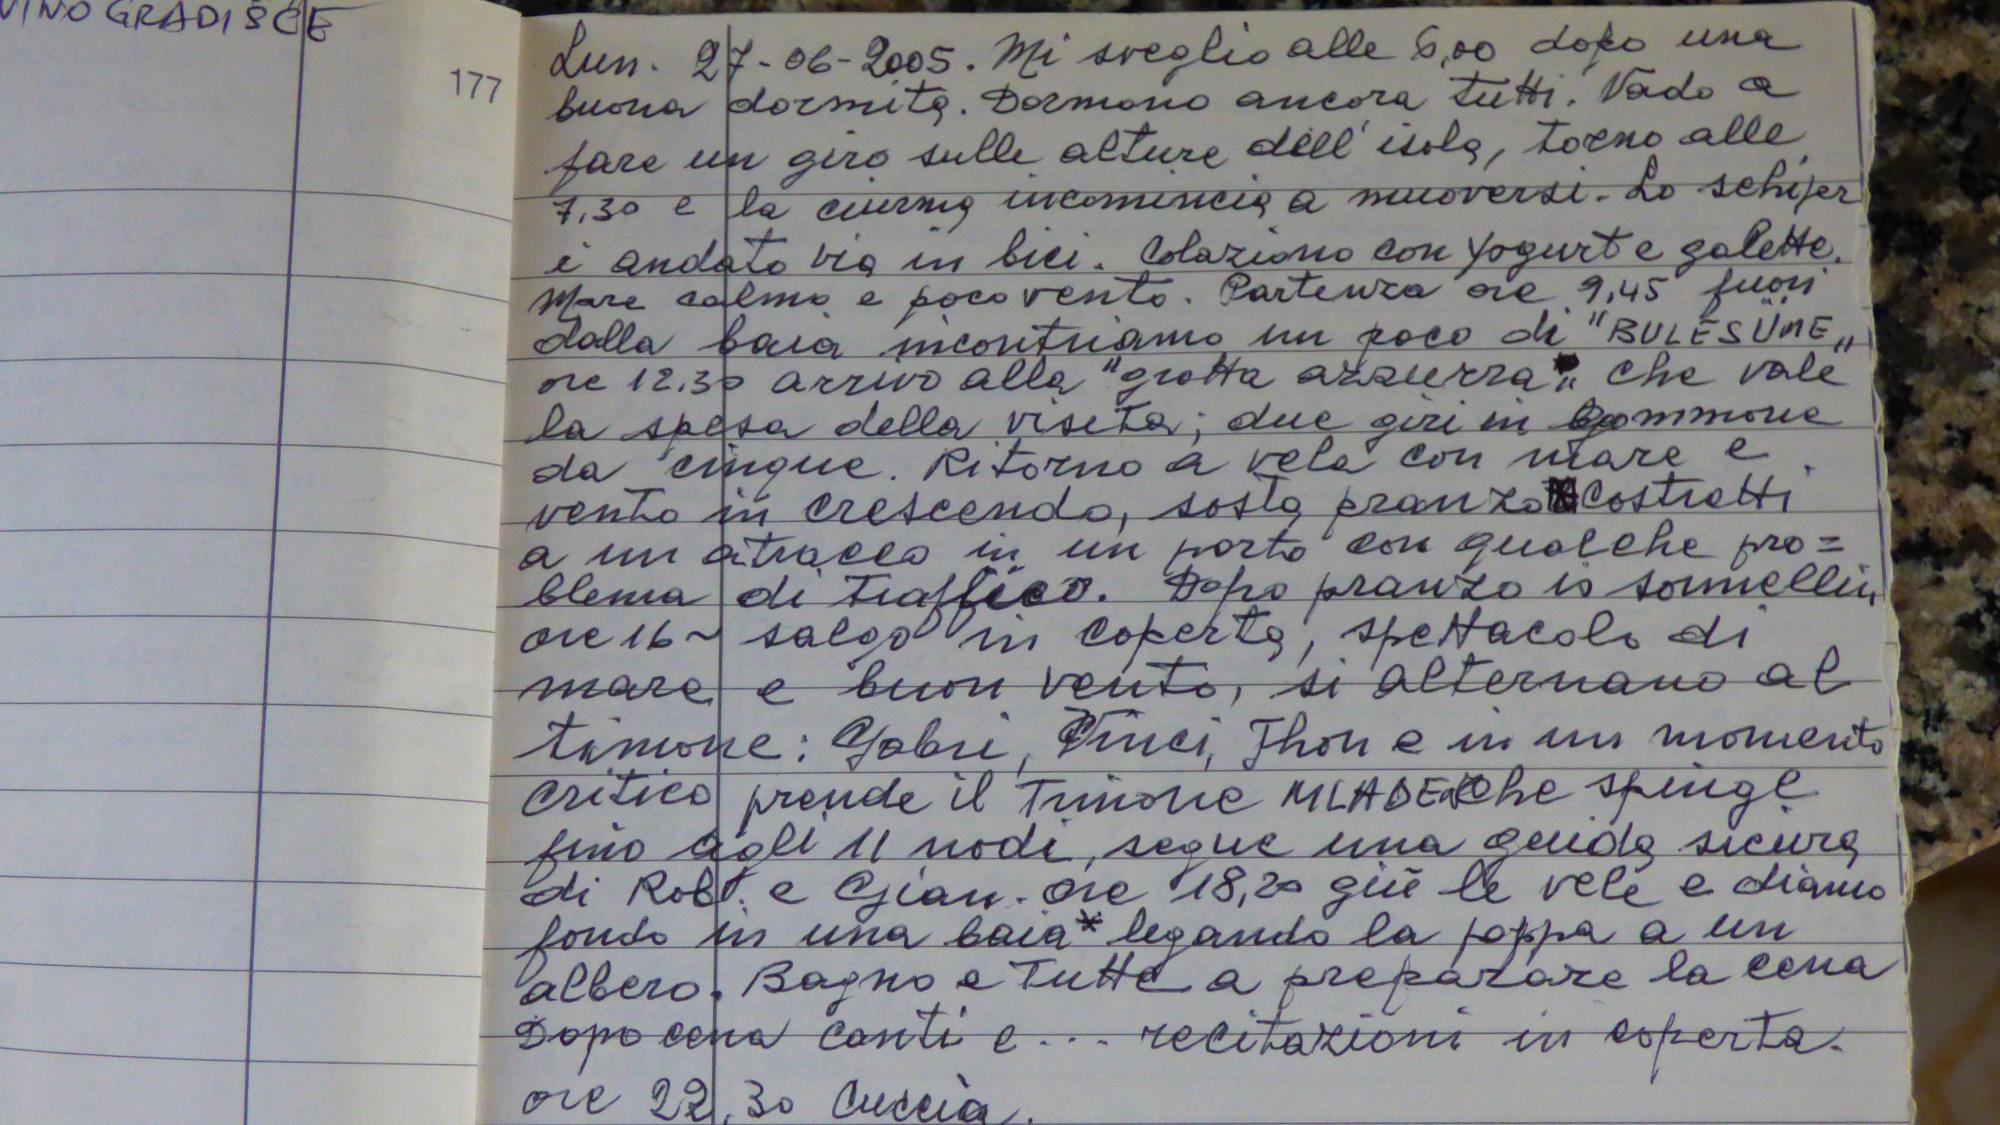 VINOGRADIŠČE
177
Lun. 27-06-2005. Mi sveglio alle 6,00 dopo una
buona dormita. Dormono ancora tutti. Vado a
fare un giro sulle alture dell'isola, torno alle
7,30 e la ciurma incomincia a muoversi. Lo schiper
è andato via in bici. Colaziono con Yogurt e galette.
Mare calmo e poco vento. Partenza ore 9,45 fuori
dalla baia incontriamo un poco di "BULESÜME"
ore 12.30 arrivo alla "grotta azzurra" che vale
la spesa della visita; due giri in gommone
da cinque. Ritorno a vela con mare e
vento in crescendo, sosta pranzo costretti
a un attracco in un porto con qualche pro=
blema di traffico. Dopo pranzo io sonnellin,
ore 16~ salgo in coperta, spettacolo di
mare e buon vento, si alternano al
timone: Gabri, Vinci, Jhon e in un momento
critico prende il timone MLADEN che spinge
fino agli 11 nodi, segue una guida sicura
di Rob. e Gian. ore 18,20 giù le vele e diamo
fondo in una baia* legando la poppa a un
albero. Bagno e tutte a preparare la cena
Dopo cena canti e... recitazioni in coperta.
ore 22,30 Cuccia.